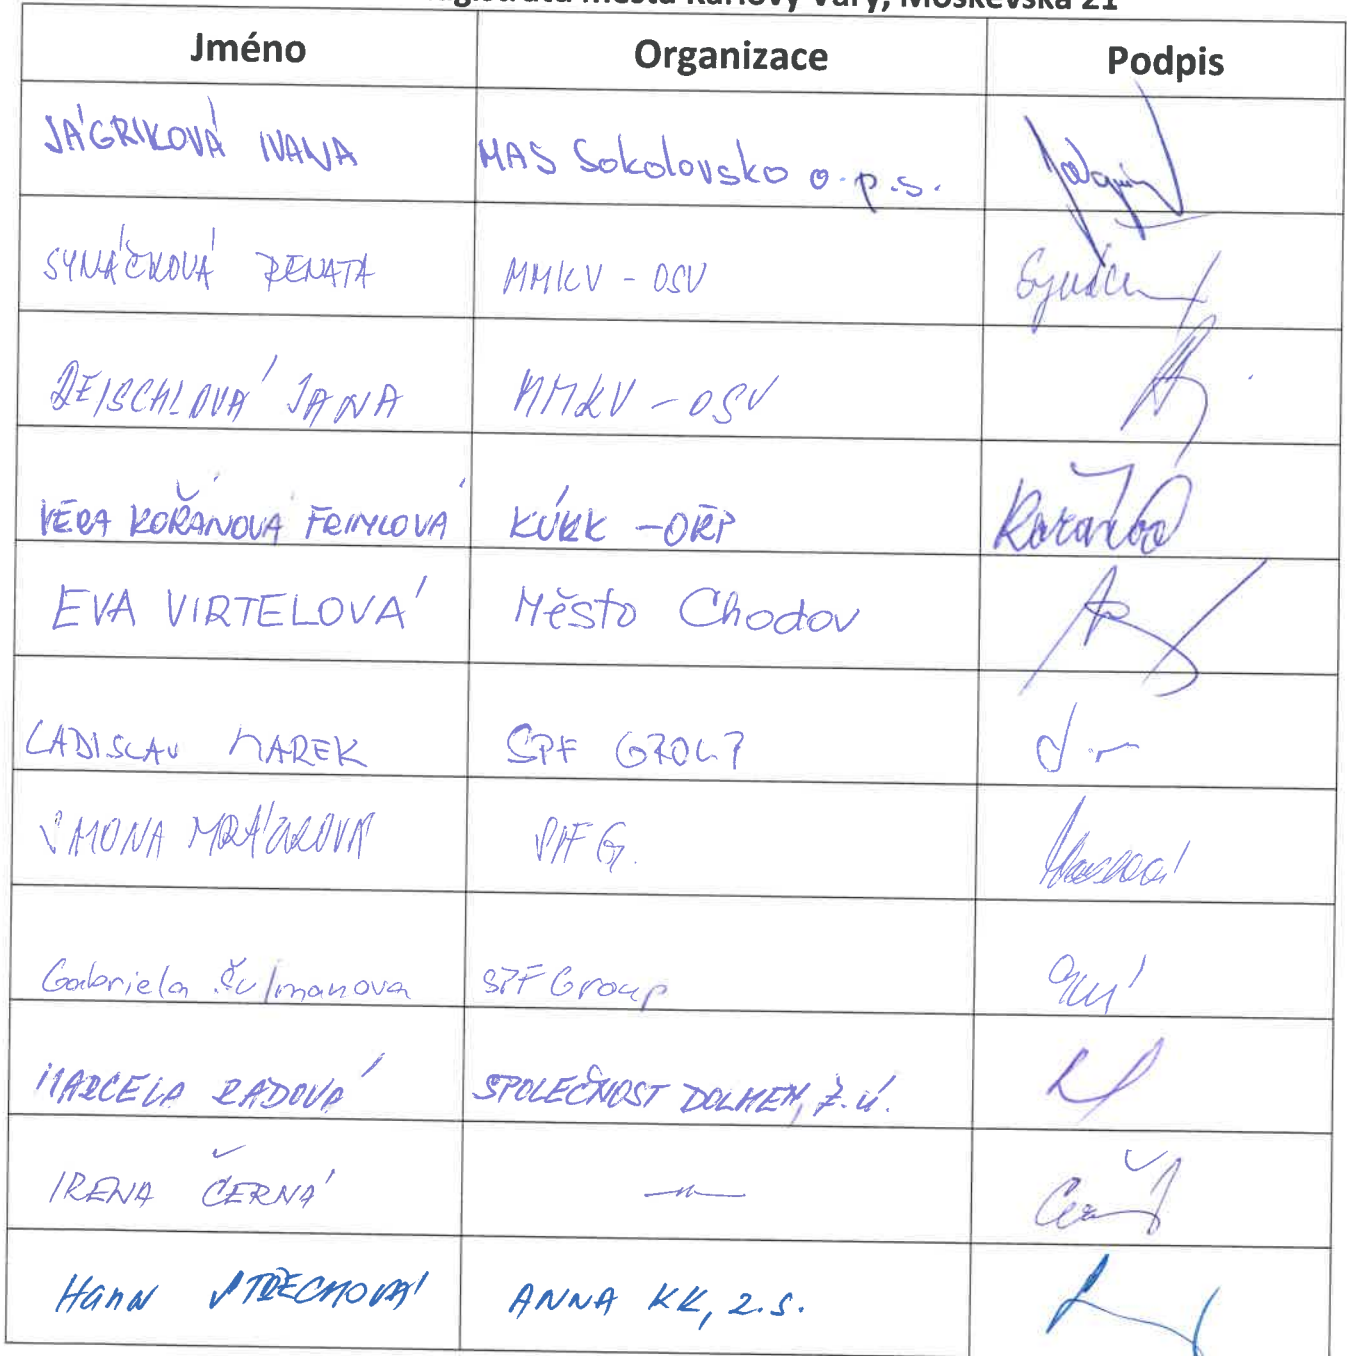 Magistrátu města Karlovy Vary, Moskevská 21
Jméno Organizace Podpis
JÁGRIKOVÁ IVANA MAS Sokolovsko o.p.s.
SYNÁČKOVÁ RENATA MMKV - OSV
REISCHLOVÁ JANA MMKV - OSV
VĚRA KOŘANOVÁ FRIMLOVÁ KÚKK - ORP
EVA VIRTELOVÁ Město Chodov
LADISLAV MAREK SPF GROUP
SIMONA MRÁČKOVÁ SPFG.
Gabriela Šulmanova SPF Group
MARCELA RADOVÁ SPOLEČNOST DOLMEN, Z.Ú.
IRENA ČERNÁ —"—
Hana STŘECHOVÁ ANNA KK, z.s.